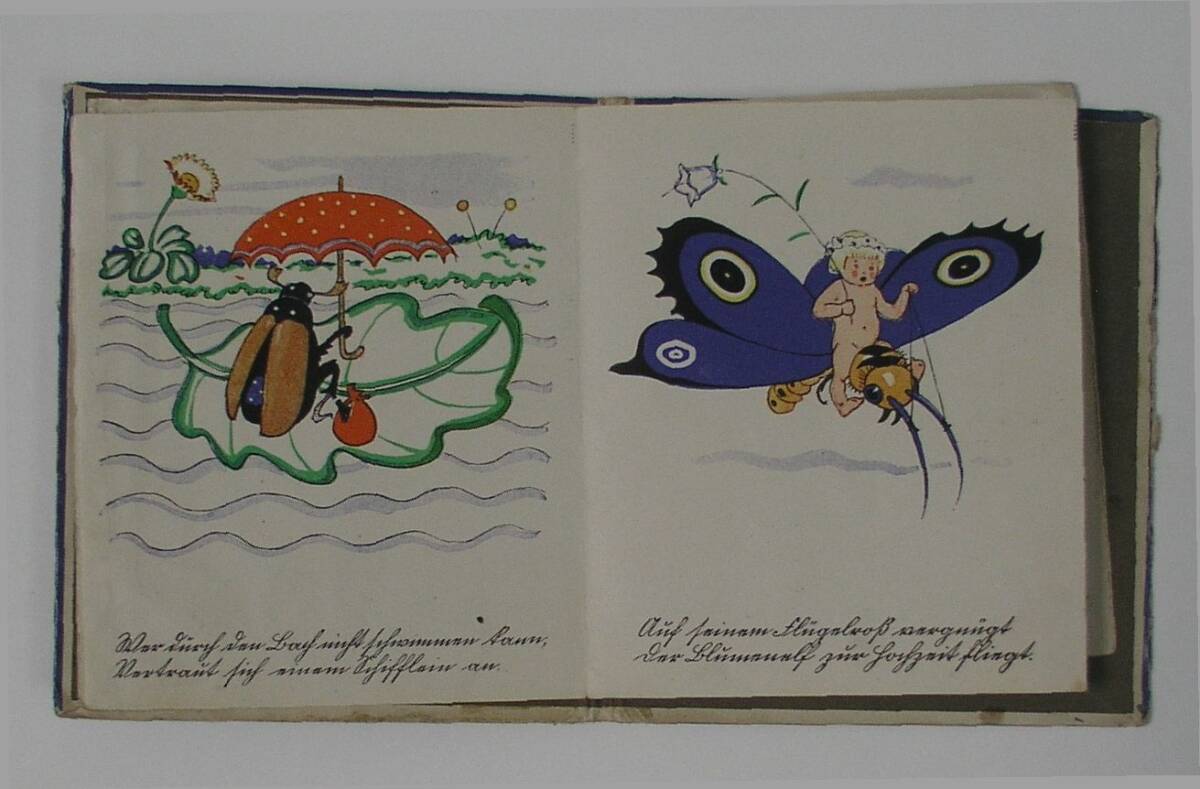 Wer durch den Bach nicht schwimmen kann,
Vertraut sich einem Schifflein an.
Auf seinem Flügelroß vergnügt
Der Blumenelf zur Hochzeit fliegt.